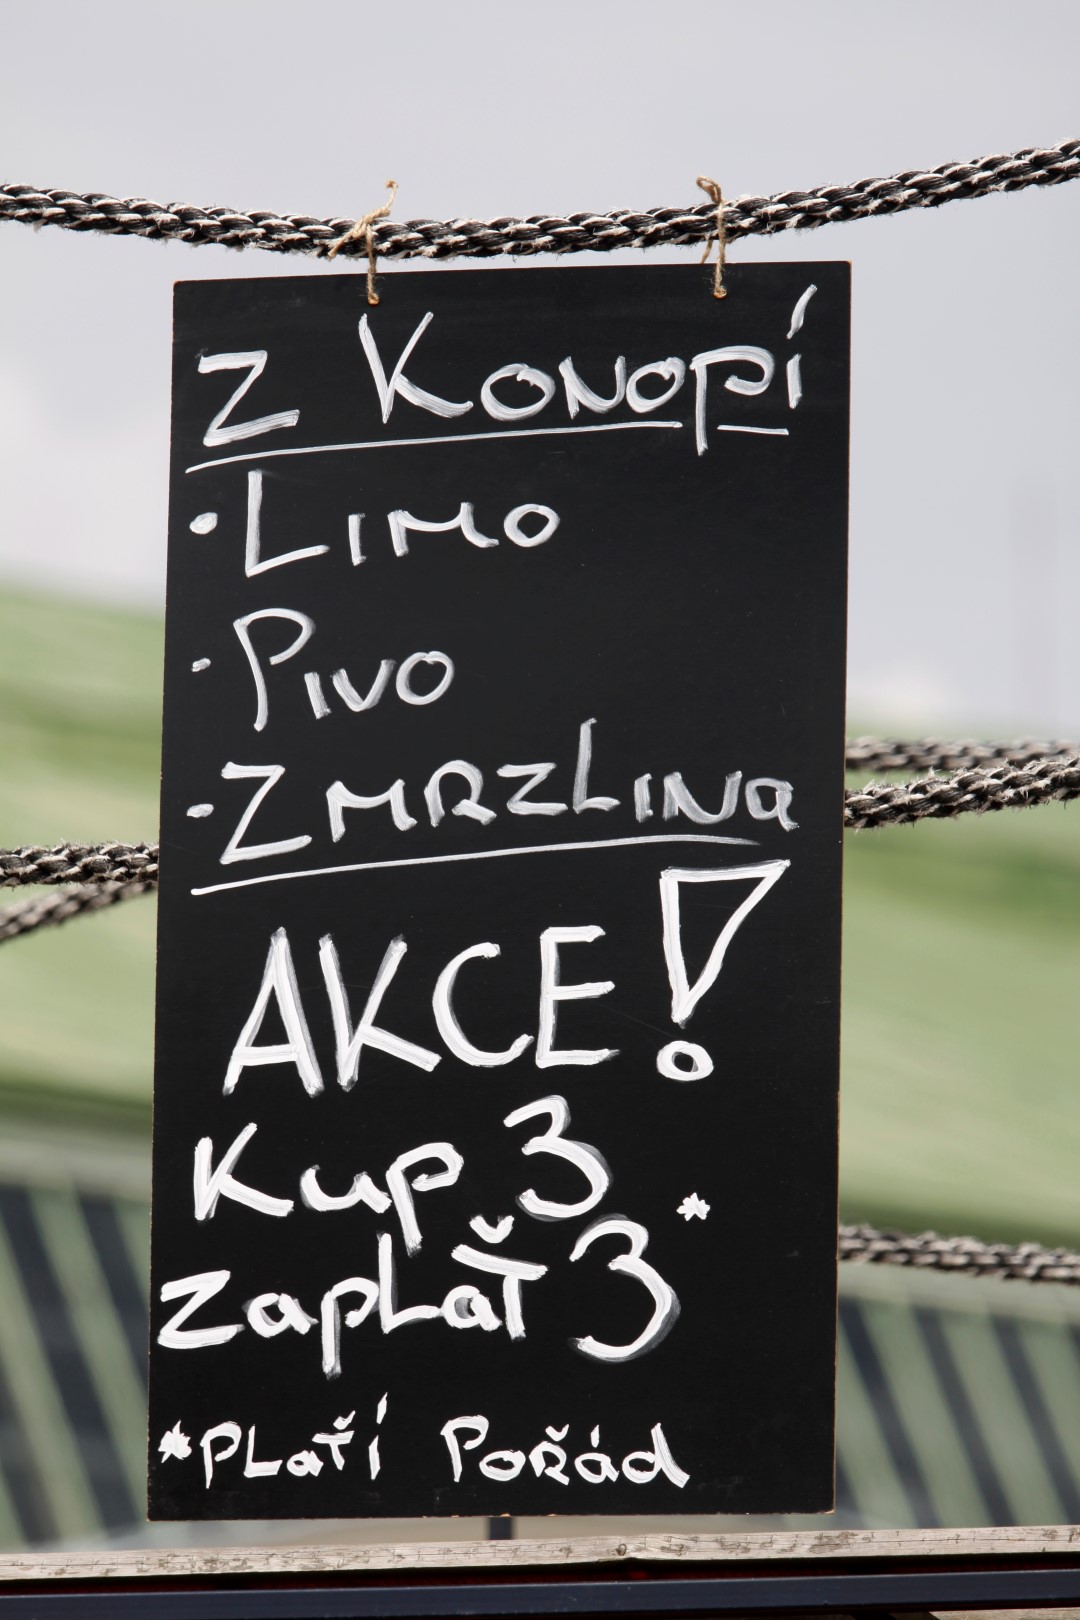 Z KONOPÍ
• LIMO
• PIVO
• ZMRZLINA
AKCE!
Kup 3
zaplať 3*
*PLAŤÍ POŘÁD